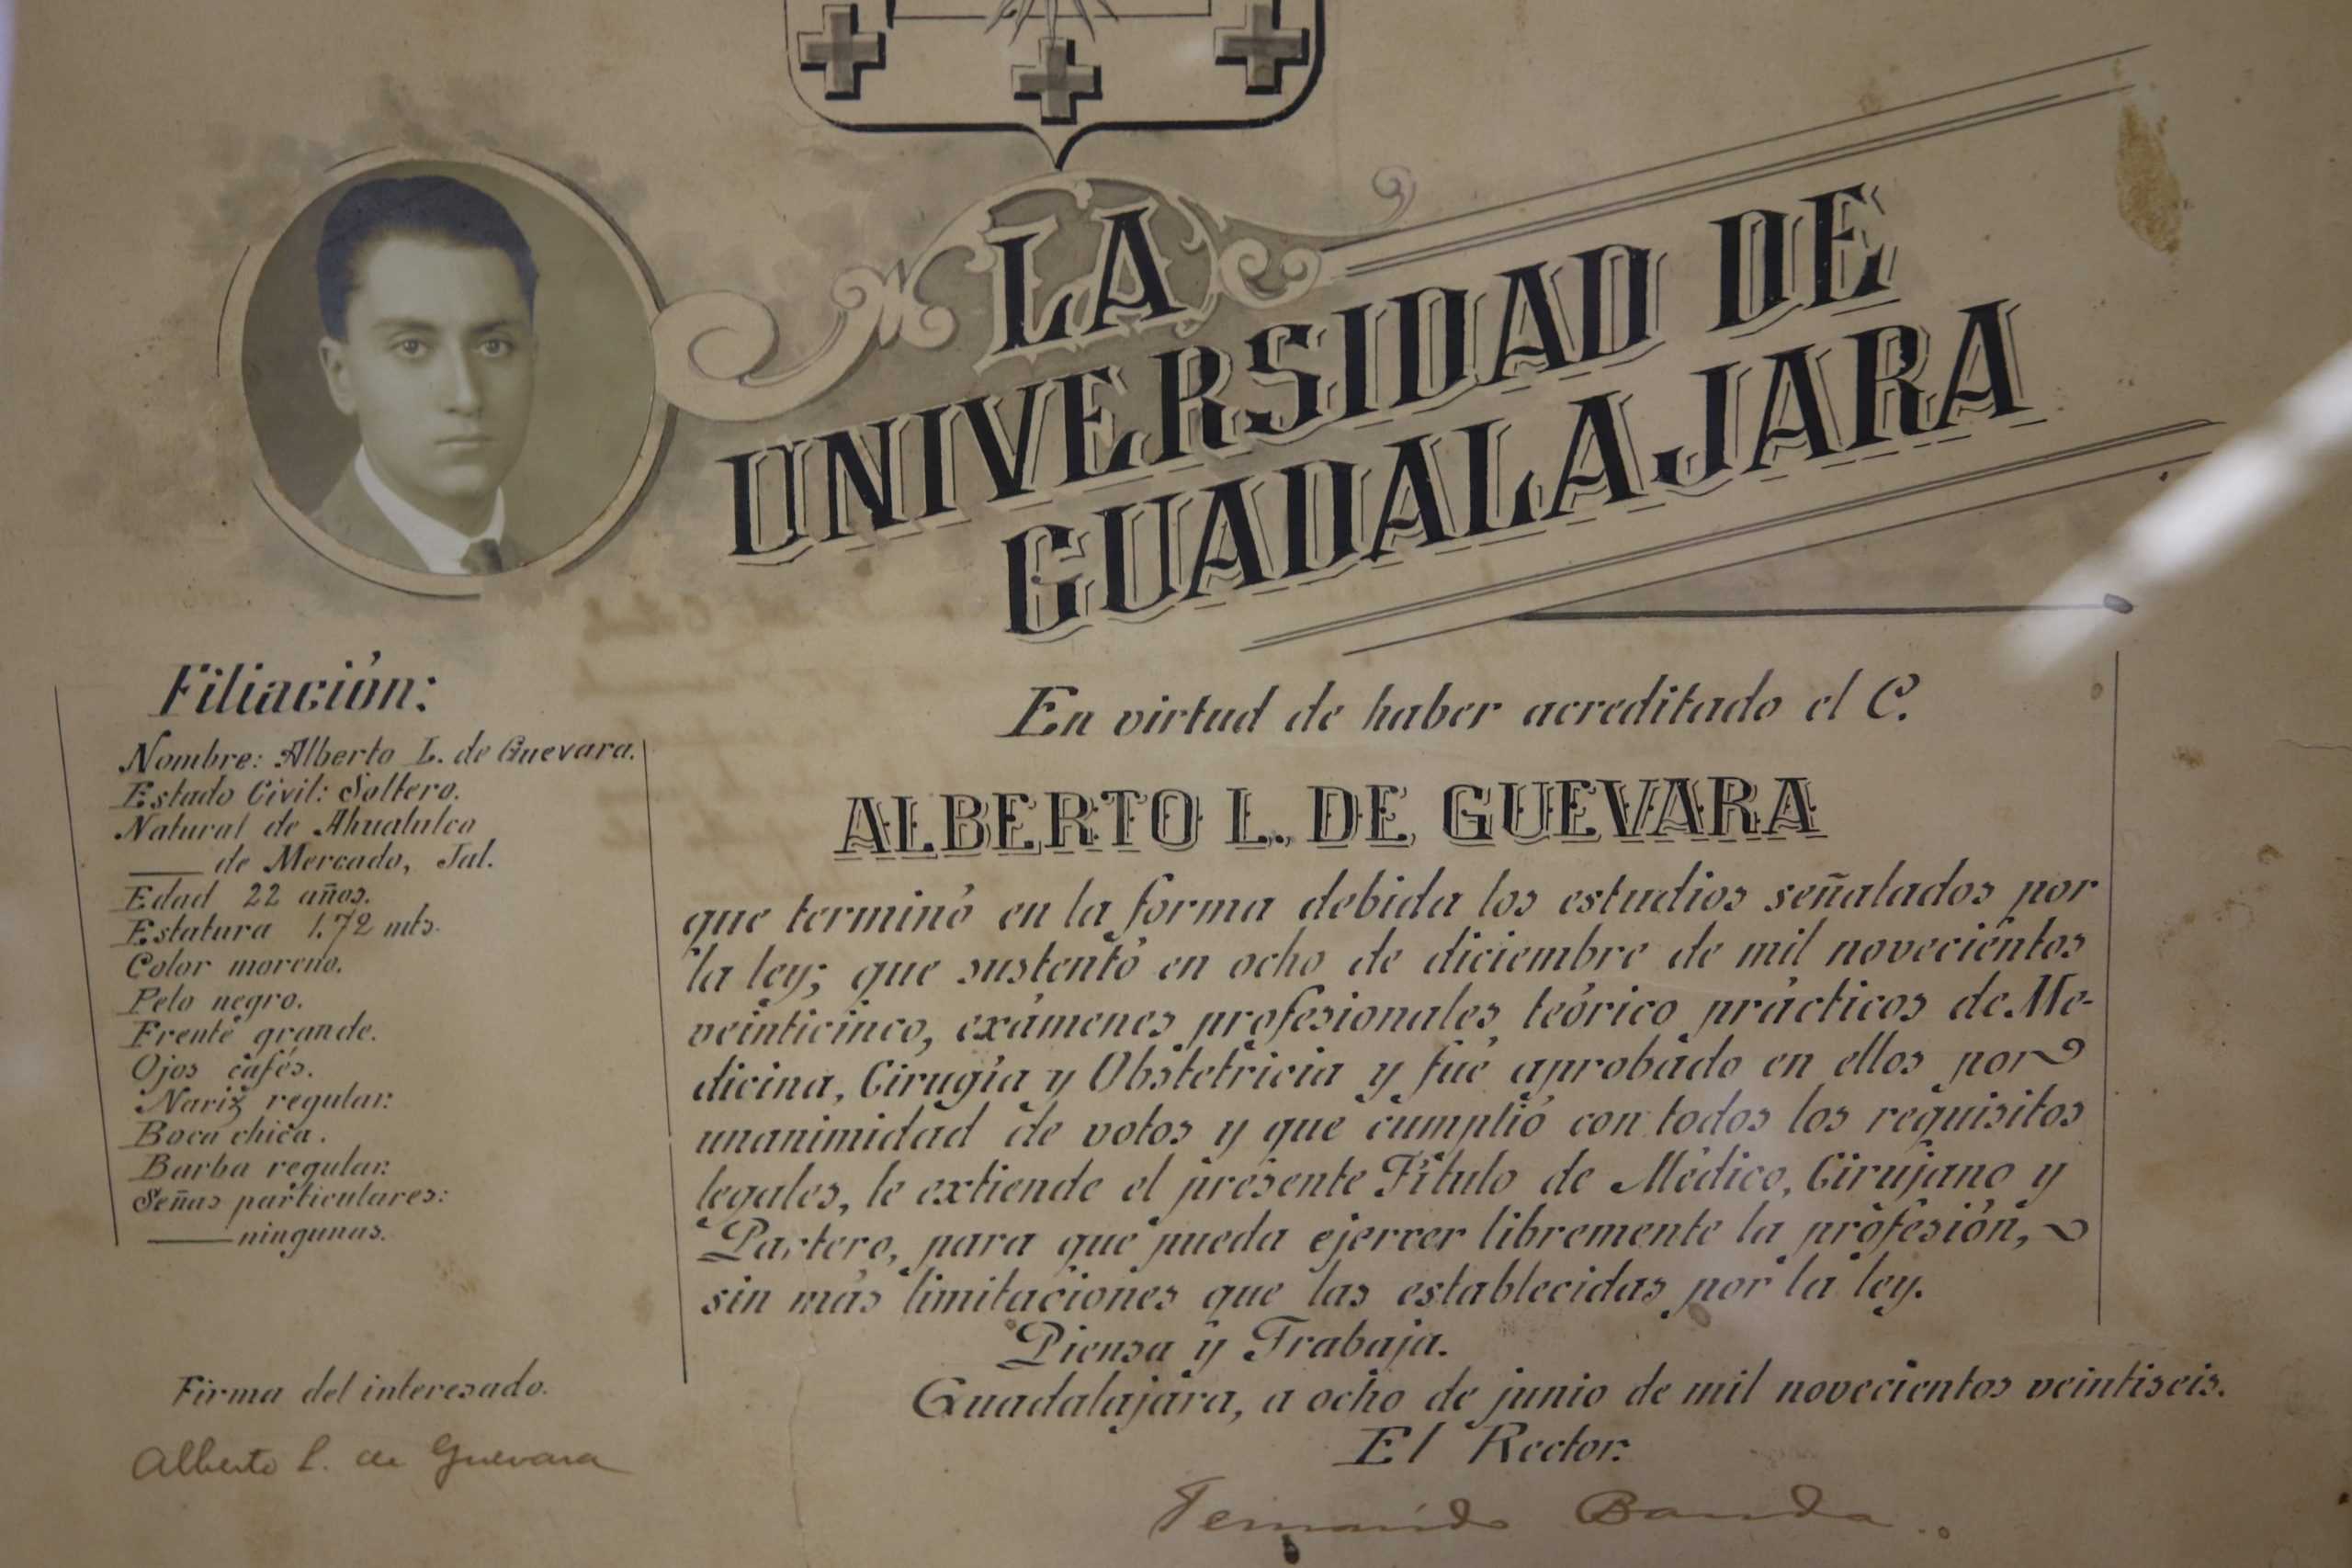 LA
UNIVERSIDAD DE
GUADALAJARA
Filiación:
Nombre: Alberto L. de Guevara.
Estado Civil: Soltero.
Natural de Ahualulco
de Mercado, Jal.
Edad 22 años.
Estatura 1.72 mts.
Color moreno.
Pelo negro.
Frente grande.
Ojos cafés.
Nariz regular.
Boca chica.
Barba regular.
Señas particulares:
ningunas.
Firma del interesado.
Alberto L. de Guevara
En virtud de haber acreditado el C.
ALBERTO L. DE GUEVARA
que terminó en la forma debida los estudios señalados por
la ley; que sustentó en ocho de diciembre de mil novecientos
veinticinco, exámenes profesionales teórico prácticos de Me-
dicina, Cirugía y Obstetricia y fué aprobado en ellos por
unanimidad de votos y que cumplió con todos los requisitos
legales, le extiende el presente Título de Médico, Cirujano y
Partero, para que pueda ejercer libremente la profesión,
sin más limitaciones que las establecidas por la ley.
Piensa y Trabaja.
Guadalajara, a ocho de junio de mil novecientos veintiseis.
El Rector.
Fernando Banda.